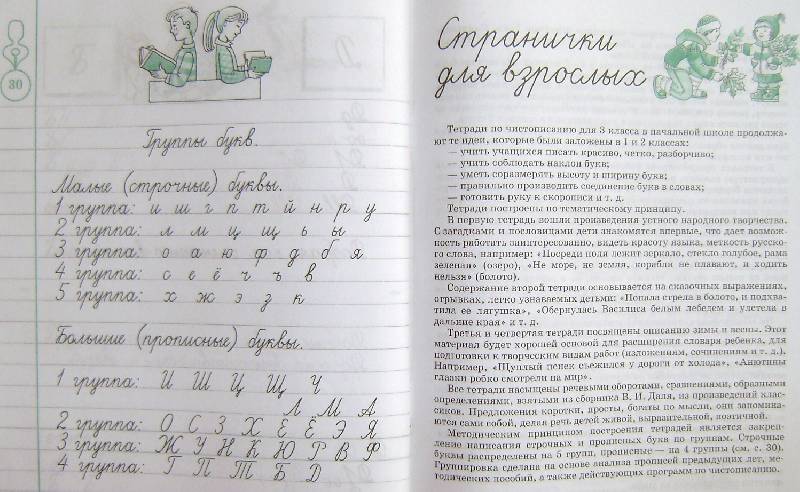 30
Группы букв.
Малые (строчные) буквы.
1 группа: и ш г п т й н р у
2 группа: л м ц щ ь ы
3 группа: о а ю ф д б я
4 группа: с е ё ч ъ в
5 группа: х ж э з к
Большие (прописные) буквы.
1 группа: И Ш Ц Щ Ч
Л М А
2 группа: О С З Х Е Ё Э Я
3 группа: Ж У Н К Ю Р В Ф
4 группа: Г П Т Б Д
Странички
для взрослых
Тетради по чистописанию для 3 класса в начальной школе продолжа-
ют те идеи, которые были заложены в 1 и 2 классах:
— учить учащихся писать красиво, четко, разборчиво;
— учить соблюдать наклон букв;
— уметь соразмерять высоту и ширину букв;
— правильно производить соединение букв в словах;
— готовить руку к скорописи и т. д.
Тетради построены по тематическому принципу.
В первую тетрадь вошли произведения устного народного творчества.
С загадками и пословицами дети знакомятся впервые, что дает возмож-
ность работать заинтересованно, видеть красоту языка, меткость русско-
го слова, например: «Посреди поля лежит зеркало, стекло голубое, рама
зеленая» (озеро), «Не море, не земля, корабли не плавают, и ходить
нельзя» (болото).
Содержание второй тетради основывается на сказочных выражениях,
отрывках, легко узнаваемых детьми: «Попала стрела в болото, и подхва-
тила ее лягушка», «Обернулась Василиса белым лебедем и улетела в
дальние края» и т. д.
Третья и четвертая тетради посвящены описанию зимы и весны. Этот
материал будет хорошей основой для расширения словаря ребенка, для
подготовки к творческим видам работ (изложениям, сочинениям и т. д.).
Например, «Щуплый пенек съежился у дороги от холода», «Анютины
глазки робко смотрели на мир».
Все тетради насыщены речевыми оборотами, сравнениями, образными
определениями, взятыми из сборника В. И. Даля, из произведений клас-
сиков. Предложения коротки, просты, богаты по мысли, они запомина-
ются сами собой, делая речь детей живой, выразительной, поэтичной.
Методическим принципом построения тетрадей является закреп-
ление написания строчных и прописных букв по группам. Строчные
буквы распределены на 5 групп, прописные — на 4 группы (см. с. 30).
Группировка сделана на основе анализа прописей предыдущих лет, ме-
тодических пособий, а также действующих программ по чистописанию.